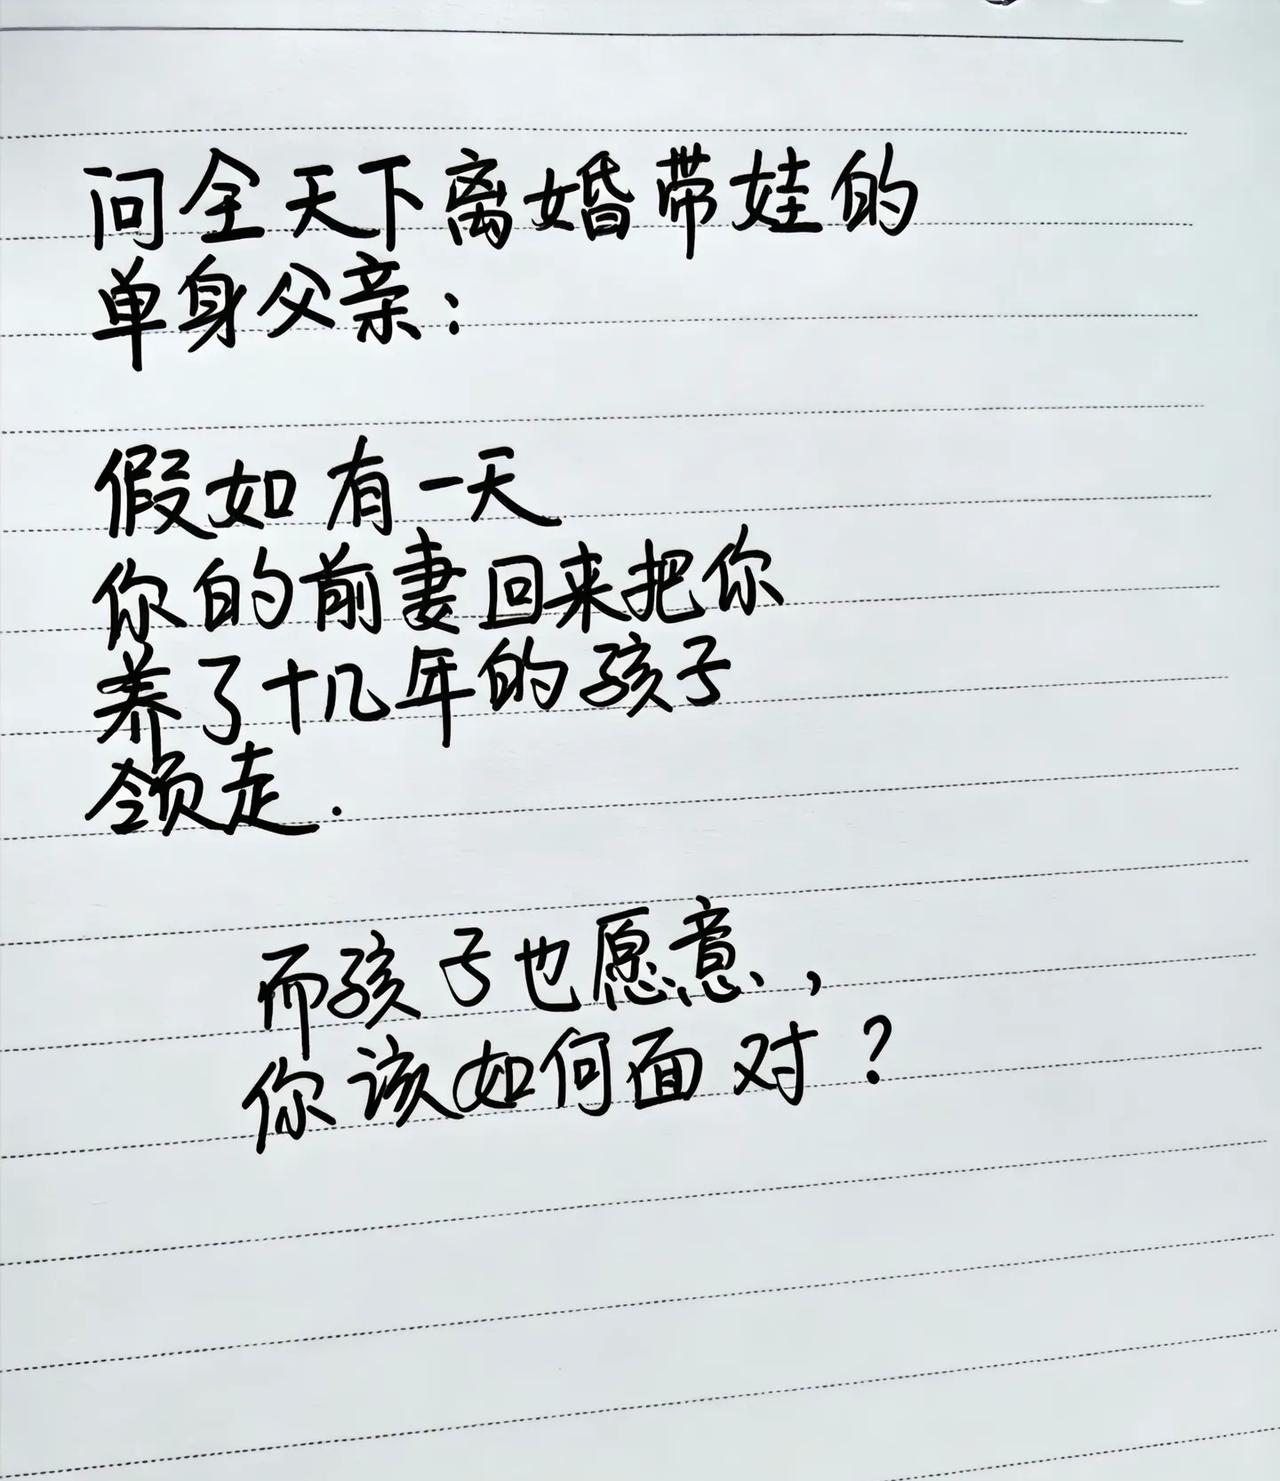 问全天下离婚带娃的
单身父亲：
假如有一天
你的前妻回来把你
养了十几年的孩子
领走.
而孩子也愿意，
你该如何面对？